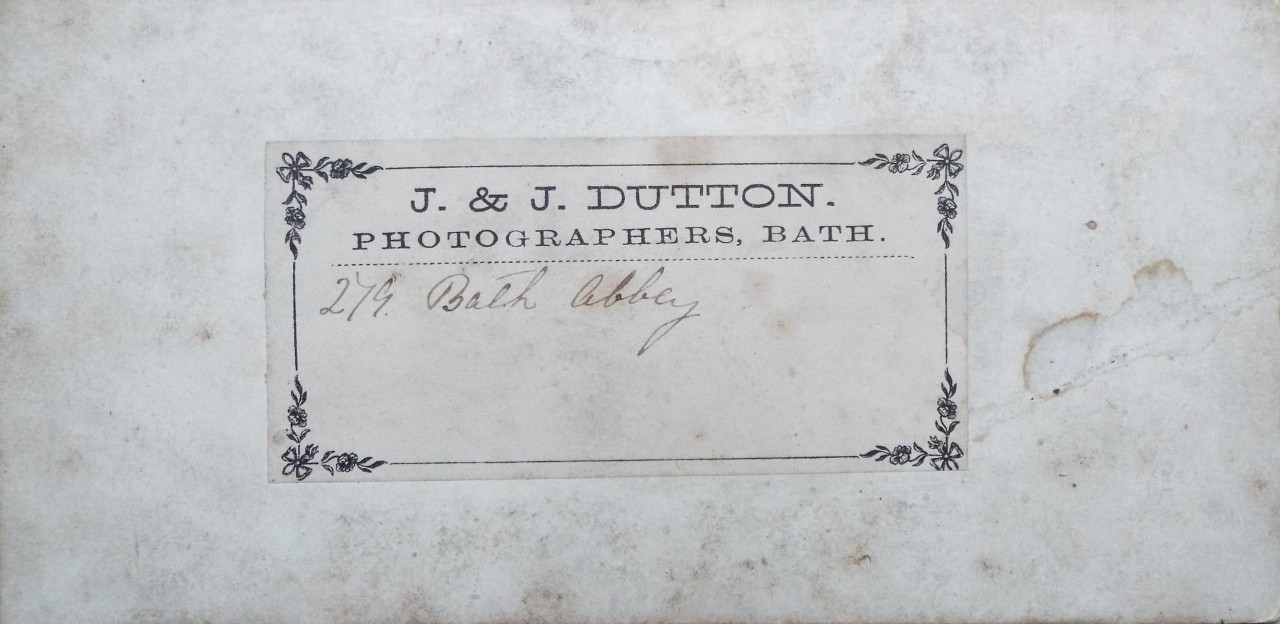 J. & J. DUTTON.
PHOTOGRAPHERS, BATH.
279. Bath Abbey